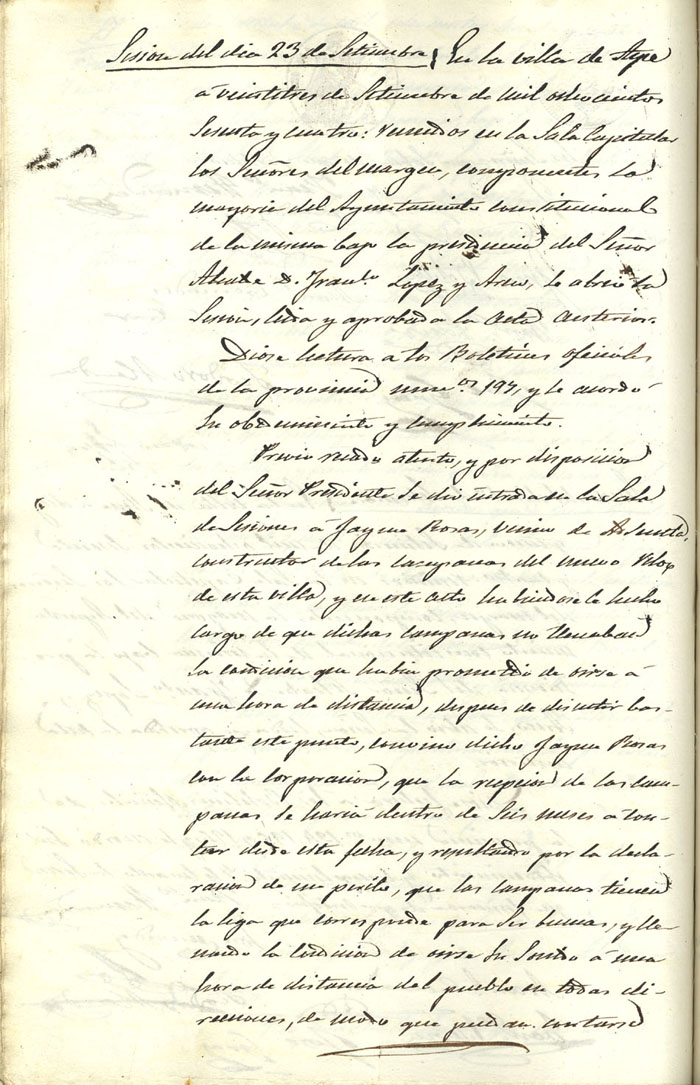 Sesion del dia 23 de Setiembre, En la villa de Aspe
a veintitres de Setiembre de mil ochocientos
sesenta y cuatro: reunidos en la Sala Capitular
los Señores del margen, componentes la
mayoria del Ayuntamiento constitucional
de la misma bajo la presidencia del Señor
Alcalde D. Franco. Lopez y se abrió la
Sesion, leida y aprobada la Acta anterior.
Diose lectura a los Boletines oficiales
de la provincia numos. 197, y se acordó
su obedecimiento y cumplimiento.
Previo recado atento, y por disposicion
del Señor Presidente se dio entrada en la Sala
de Sesiones á Jayme Rosas, vecino de
constructor de las campanas del nuevo Relox
de esta villa, y en este acto habiendosele hecho
cargo de que dichas campanas no llenaban
la condicion que habia prometido de oirse á
una hora de distancia, despues de discutir bas-
tante este punto, convino dicho Jayme Rosas
con la Corporacion, que la recepcion de las cam-
panas se haria dentro de seis meses a con-
tar desde esta fecha, y resultando por la decla-
racion de un perito, que las campanas tienen
la liga que corresponde para ser buenas, y lle-
nando la condicion de oirse su sonido á una
hora de distancia del pueblo en todas di-
recciones, de modo que puedan contarse